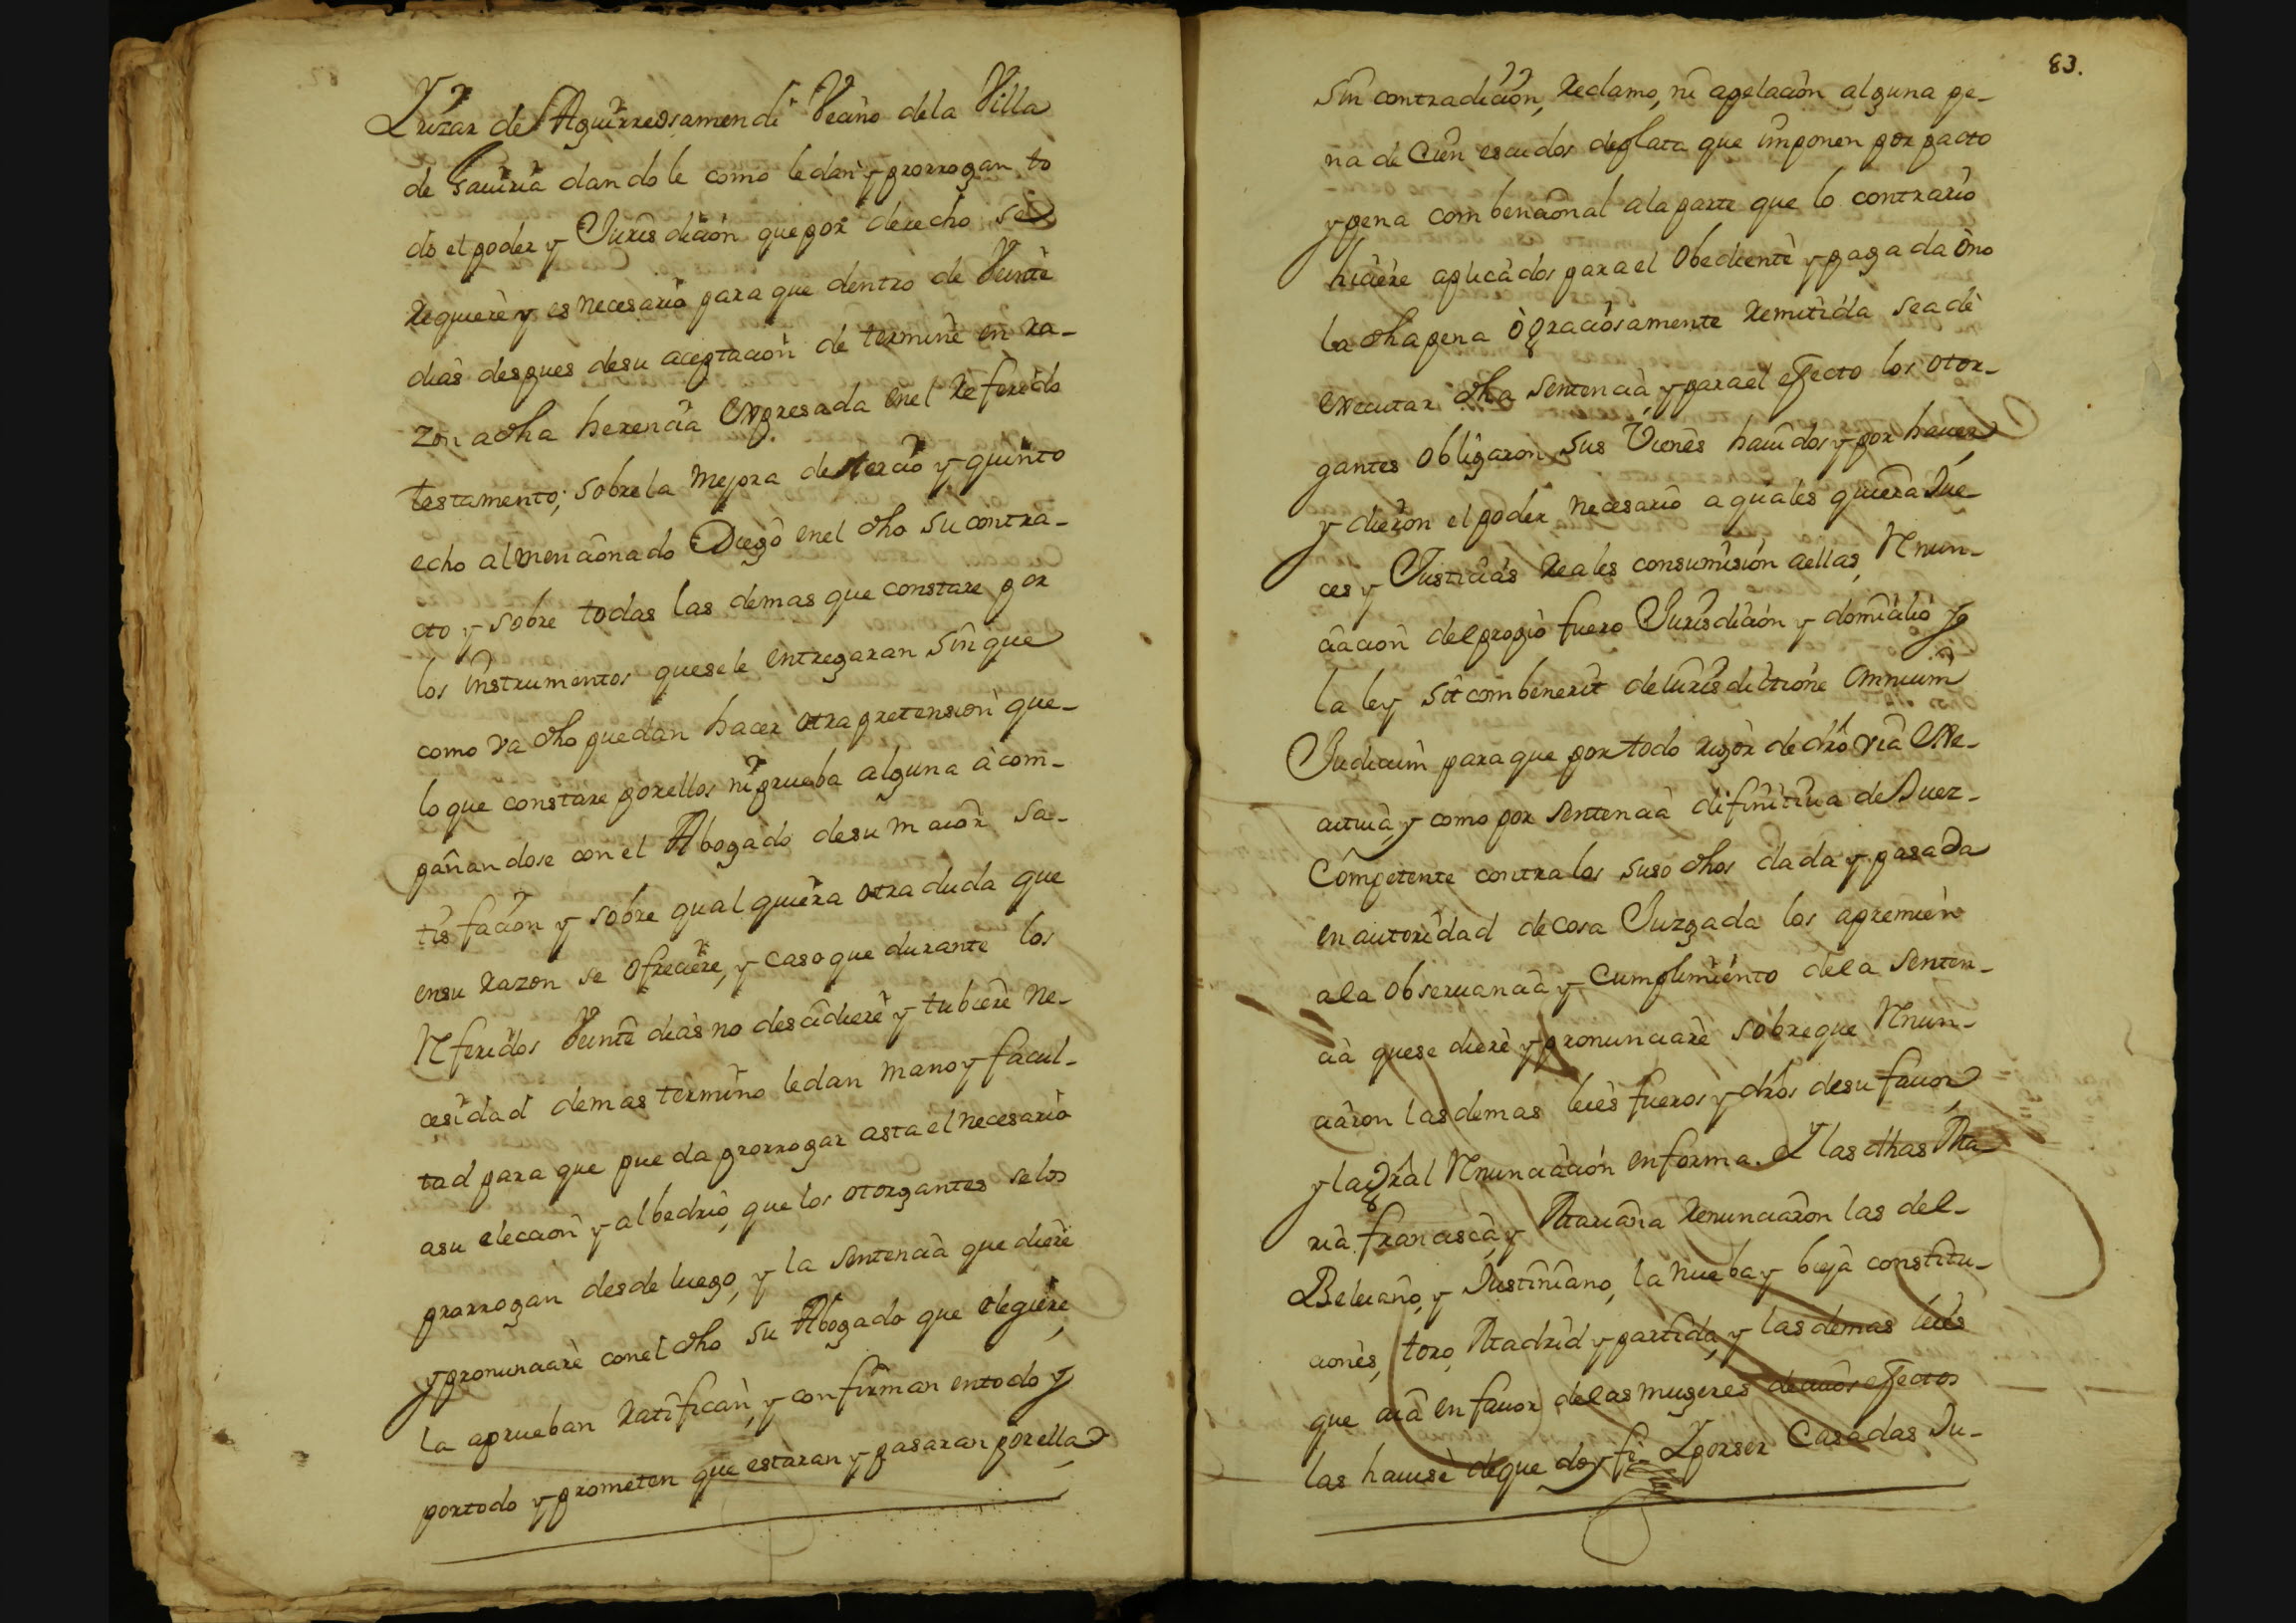 Lrizar de Aguirreosamendi Vecino dela Villa
de Gauiria dandole como ledan y prorrogan to
do el poder y Jurisdicion que por derecho se
Requiere y es necesario para que dentro de Veinte
dias despues desu aceptacion determine en ra-
zon a dha herencia expresada enel Referido
testamento; sobre la mejora de tercio y quinto
echo al mencionado Diego enel dho su contra-
cto y sobre todas las demas que constare por
los instrumentos quesele entregaran sin que
como va dho puedan hacer otra pretension que-
lo que constare porellos ni prueba alguna acom-
pañandose con el Abogado desu maior sa-
tisfacion y sobre qual quiera otra duda que
ensu razon se ofreciere, y caso que durante los
Referidos Veinte dias no descidiere y tubiere ne-
cesidad demas termino ledan mano y facul-
tad para que pueda prorrogar asta el necesario
asu eleccion y albedrio, que los otorgantes selos
prorrogan desde luego, y la sentencia que diere
y pronunciare conel dho su Abogado que eligiere,
la aprueban Ratifican, y confirman entodo y
portodo y prometen que estaran y pasaran porella,
83.
Sin contradicion, Reclamo, ni apelacion alguna pe-
na de Cien escudos deplata que imponen por pacto
y pena combencional ala parte que lo contrario
hiciere aplicados para el Obediente y pagada òno
la dha pena ò graciosamente Remitida seade
executar dha sentencia, y para el efecto los otor-
gantes obligaron sus Vienes hauidos y por hauer,
y dieron el poder necesario a quales quiera Jue-
ces y Justicias Reales consumision aellas, Renun-
ciacion delpropio fuero Jurisdicion y domicilio y
la ley sit combenerit de Jurisdictione Omnium
Judicum para que por todo rigor de dro via exe-
cutiua, y como por sentencia difinitiua de Juez-
Competente contra los suso dhos dada y pasada
en autoridad de cosa Juzgada los apremien
ala Obseruancia y Cumplimiento dela senten-
cia quese diere y pronunciare sobre que Renun-
ciaron lasdemas leies fueros y dros desu fauor,
y la gral Renunciacion enforma. Y las dhas Ma-
ria francisca, y Mariana Renunciaron las del-
Beleiano, y Justiniano, la nueba y bieja constitu-
ciones, toro, Madrid y partida, y las demas leies
que aia en fauor delas mugeres decuios efectos
las hauise deque doy fe Y porser Casadas Ju-